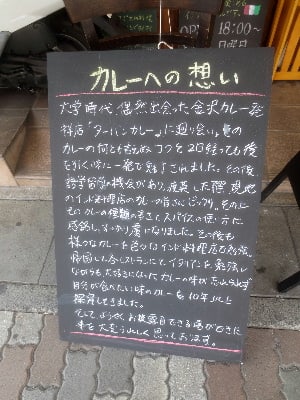 18:00～
日曜日
カレーへの想い
大学時代 偶然出会った金沢カレー発
祥店「ターバンカレー」に巡り会い、真の
カレーの何とも言えぬコクを20年経っても後
を引く味に一発で魅了されました。その後
語学留学の機会があり、渡英した際、現地
のインド料理店のカレーの旨さにビックリ。その上
カレーの種類の多さとスパイスの使い方に
感銘し、すっかり虜になりました。その後も
様々なカレーを食べ インド料理店で勉強。
帰国し レストランにて イタリアンを勉強し
ながらも、大好きになったカレーの味が忘れられず
自分が食べたい味のカレーを10年以上
探究してきました。
そして、ようやくお披露目できる場ができた
事を大変うれしく思っております。